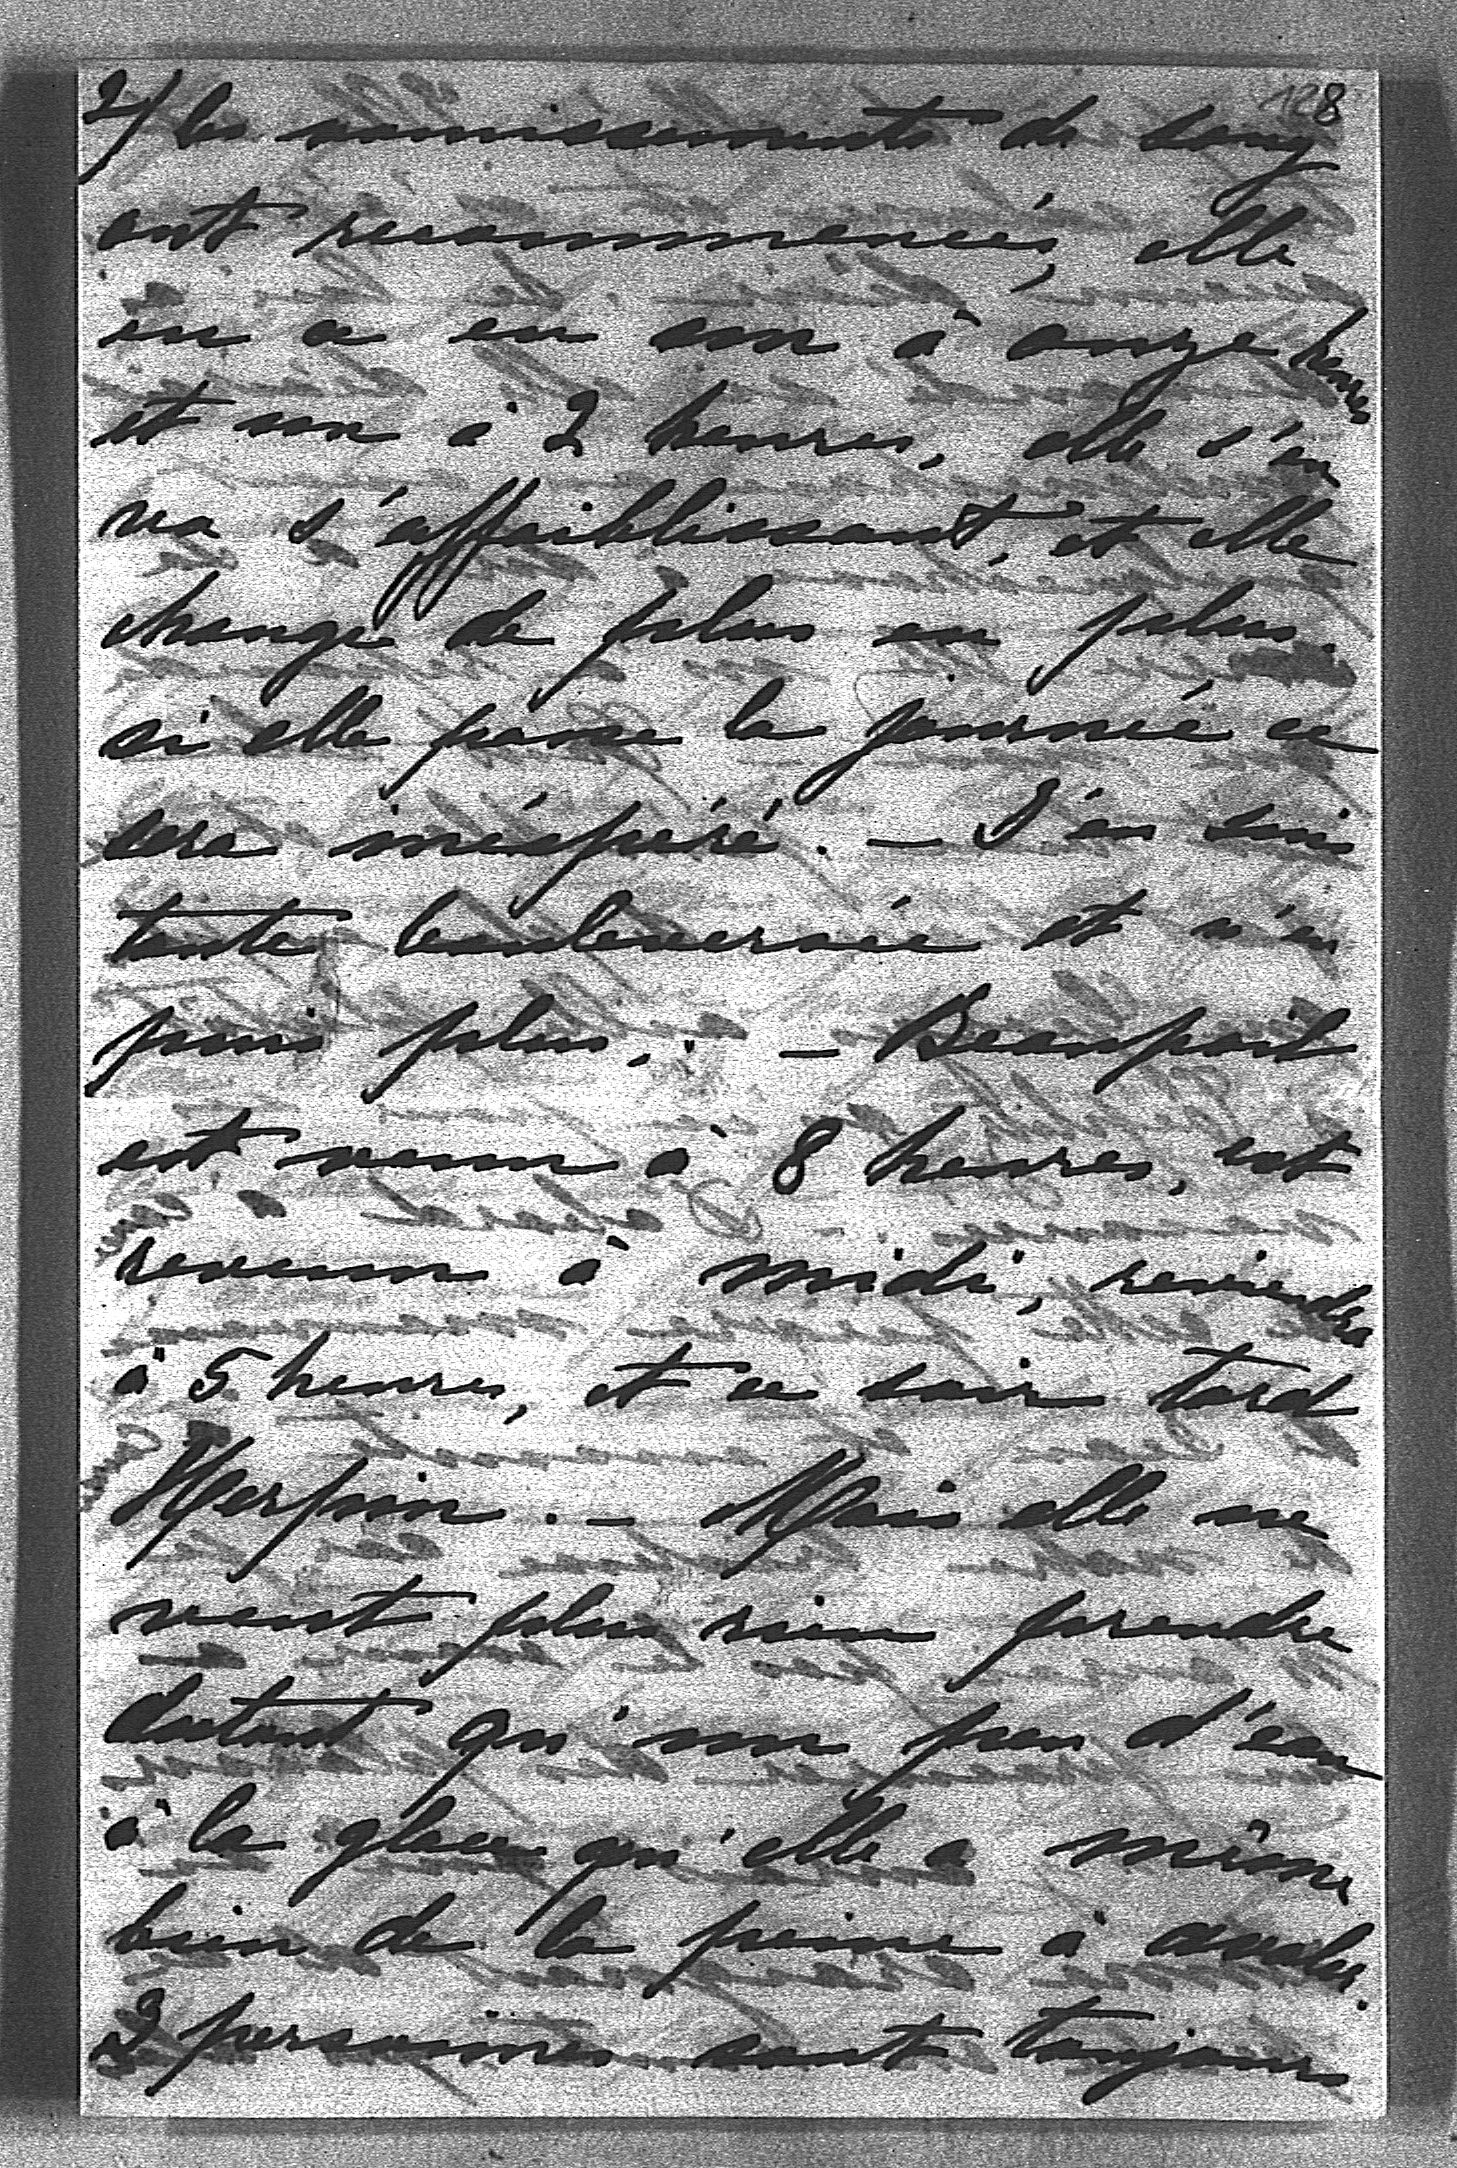 128
2/ les vomissements de sang
ont recommencés, elle
en a eu un à onze heures
et un à 2 heures, elle s'en
va s'affaiblissant, et elle
change de plus en plus.
si elle passe la journée ce
sera inéspéré. — J'en suis
toute bouleversée et n'en
puis plus. — Beaupoil
est venu à 8 heures, est
revenu à midi, reviendra
à 5 heures, et ce soir tard
Herpin. — Mais elle ne
veut plus rien prendre
autant qu'un peu d'eau
à la glace qu'elle a même
bien de la peine à avaler.
2 personnes sont toujours